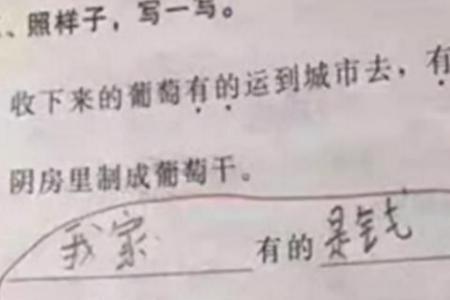 、照样子，写一写。
收下来的葡萄有的运到城市去，有
阴房里制成葡萄干。
我家有的是钱